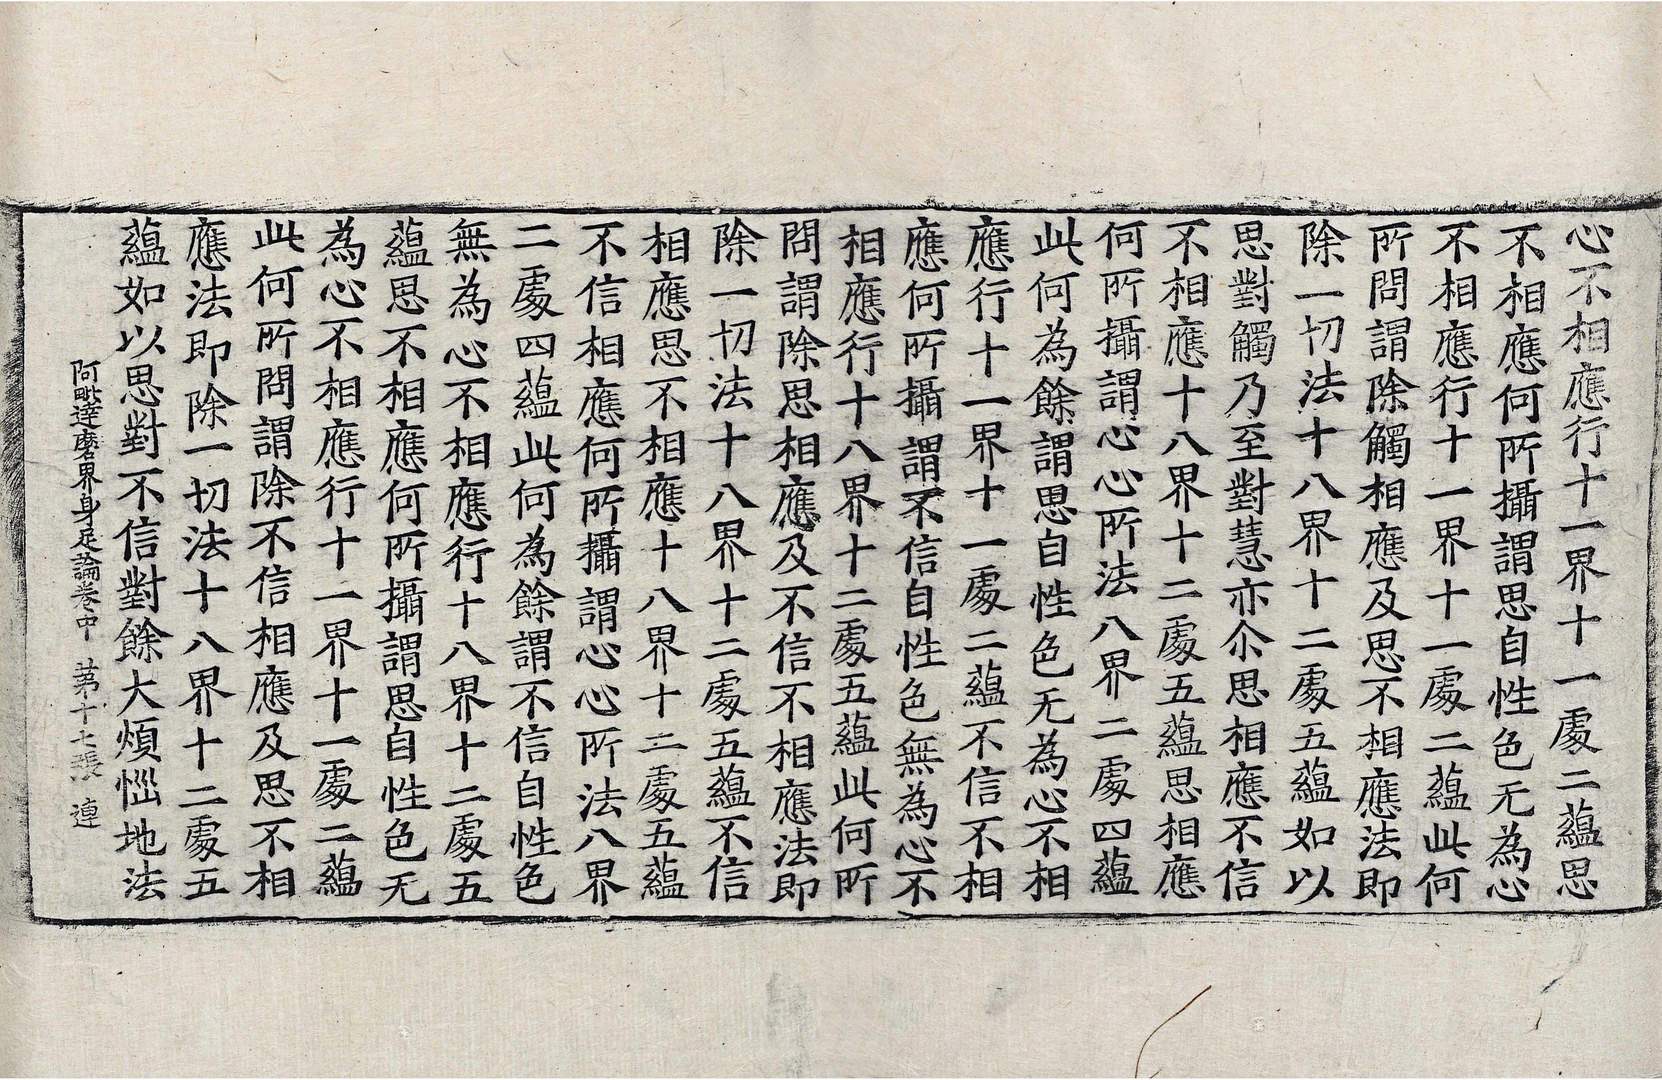 心不相應行十一界十一處二蘊思
不相應何所攝謂思自性色无為心
不相應行十一界十一處二蘊此何
所問謂除觸相應及思不相應法即
除一切法十八界十二處五蘊如以
思對觸乃至對慧亦尒思相應不信
不相應十八界十二處五蘊思相應
何所攝謂心心所法八界二處四蘊
此何為餘謂思自性色无為心不相
應行十一界十一處二蘊不信不相
應何所攝謂不信自性色無為心不
相應行十八界十二處五蘊此何所
問謂除思相應及不信不相應法即
除一切法十八界十二處五蘊不信
相應思不相應十八界十二處五蘊
不信相應何所攝謂心心所法八界
二處四蘊此何為餘謂不信自性色
無為心不相應行十八界十二處五
蘊思不相應何所攝謂思自性色无
為心不相應行十一界十一處二蘊
此何所問謂除不信相應及思不相
應法即除一切法十八界十二處五
蘊如以思對不信對餘大煩惱地法
阿毗達磨界身足論卷中 苐十七張 連